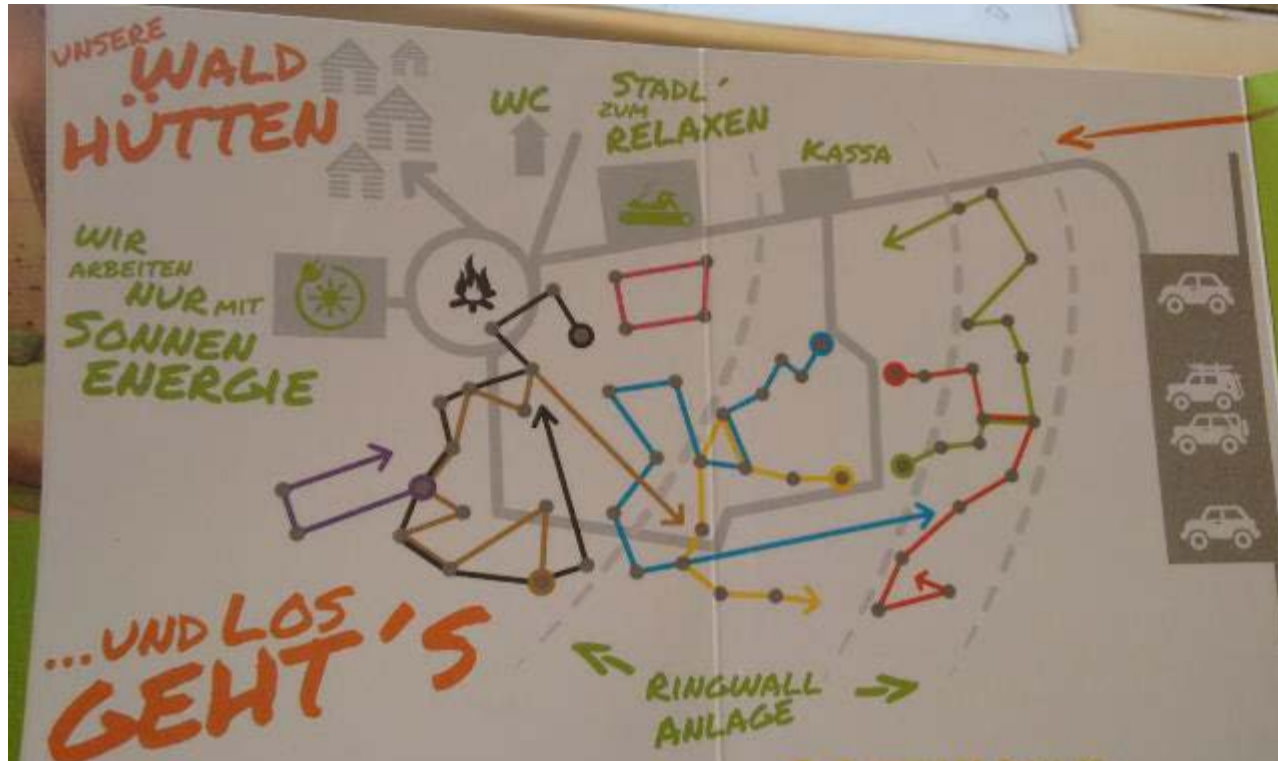 UNSERE
WALD
HÜTTEN
WC
STADL'
ZUM
RELAXEN
KASSA
WIR
ARBEITEN
NUR MIT
SONNEN
ENERGIE
...UND LOS
GEHT'S
RINGWALL
ANLAGE